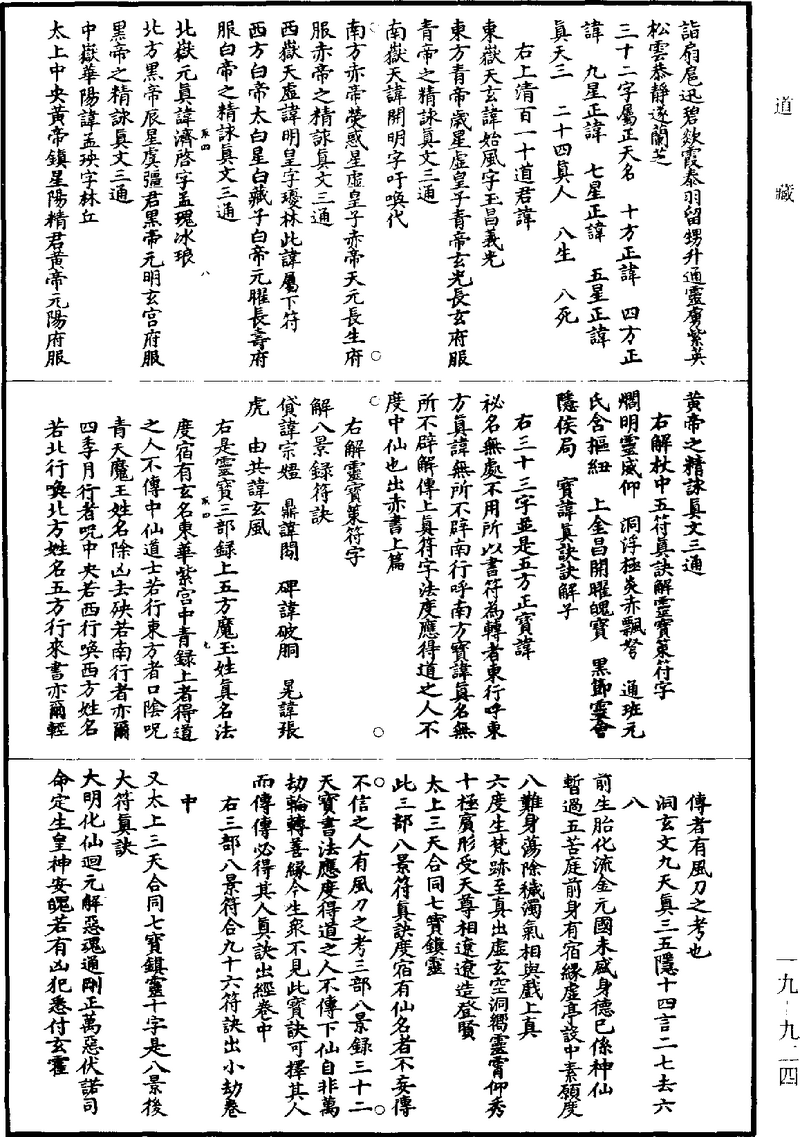 道藏
詣扇扈迅碧歘霞泰羽留甥升通靈虜紫英
松雲恭靜逐蘭芝
三十二字屬正天名　十方正諱　四方正
諱　九星正諱　七星正諱　五星正諱
真天三　二十四真人　八生　八死
右上清百一十道君諱
東嶽天玄諱始風字玉昌義光
東方青帝歲星虛皇子青帝玄光長玄府服
青帝之精詠真文三通
南嶽天諱開明字吁喚代
南方赤帝熒惑星虛皇子赤帝天元長生府
服赤帝之精詠真文三通
西嶽天虛諱明皇字瓊林此諱屬下符
西方白帝太白星白藏子白帝元曜長壽府
服白帝之精詠真文三通
北嶽元真諱濟啓字孟瑰冰琅
北方黑帝辰星虞彊君黑帝元明玄宮府服
黑帝之精詠真文三通
中嶽華陽諱孟玦字林丘
太上中央黃帝鎮星陽精君黃帝元陽府服
黃帝之精詠真文三通
右解杖中五符真訣解靈寶策符字
燗明靈威仰　洞浮極炎赤飄弩　通班元
氏含樞紐　上金昌開曜魄寶　黑節靈會
隱侯局　寶諱真訣訣解子
右三十三字並是五方正寶諱
祕名無處不用所以書符為轉者東行呼東
方真諱無所不辟南行呼南方寶諱真名無
所不辟解傳上真符字法度應得道之人不
度中仙也出赤書上篇
右解靈寶策符字
解八景錄符訣
貸諱宗嬉　鼎諱閻　碑諱破胴　晃諱張
虎　由共諱玄風
右是靈寶三部錄上五方魔玉姓真名法
度宿有玄名東華紫宮中青錄上者得道
之人不傳中仙道士若行東方者口陰呪
青天魔王姓名除凶去殃若南行者亦爾
四季月行者呪中央若西行喚西方姓名
若北行喚北方姓名五方行來書亦爾輕
傳者有風刀之考也
洞玄文九天真三五隱十四言二七去六
八
前生胎化流金元國未感身德已係神仙
暫過五苦庭前身有宿緣虛亭設中素願度
八難身蕩除穢濁氣相與戲上真
六度生梵跡至真出虛玄空洞嚮靈霄仰秀
十極賓形受天尊相遼遼造登賢
太上三天合同七寶鎮靈
此三部八景符真訣度宿有仙名者不妄傳
不信之人有風刀之考三部八景錄三十二
天寶書法應度得道之人不傳下仙自非萬
劫輪轉善緣今生眾不見此寶訣可擇其人
而傳傳必得其人真訣出經卷中
右三部八景符合九十六符訣出小劫卷
中
又太上三天合同七寶鎮靈十字是八景後
大符真訣
大明化仙迴元解惡魂通剛正萬惡伏諾司
命定生皇神安魄若有凶犯悉付玄霍
一九-九二四